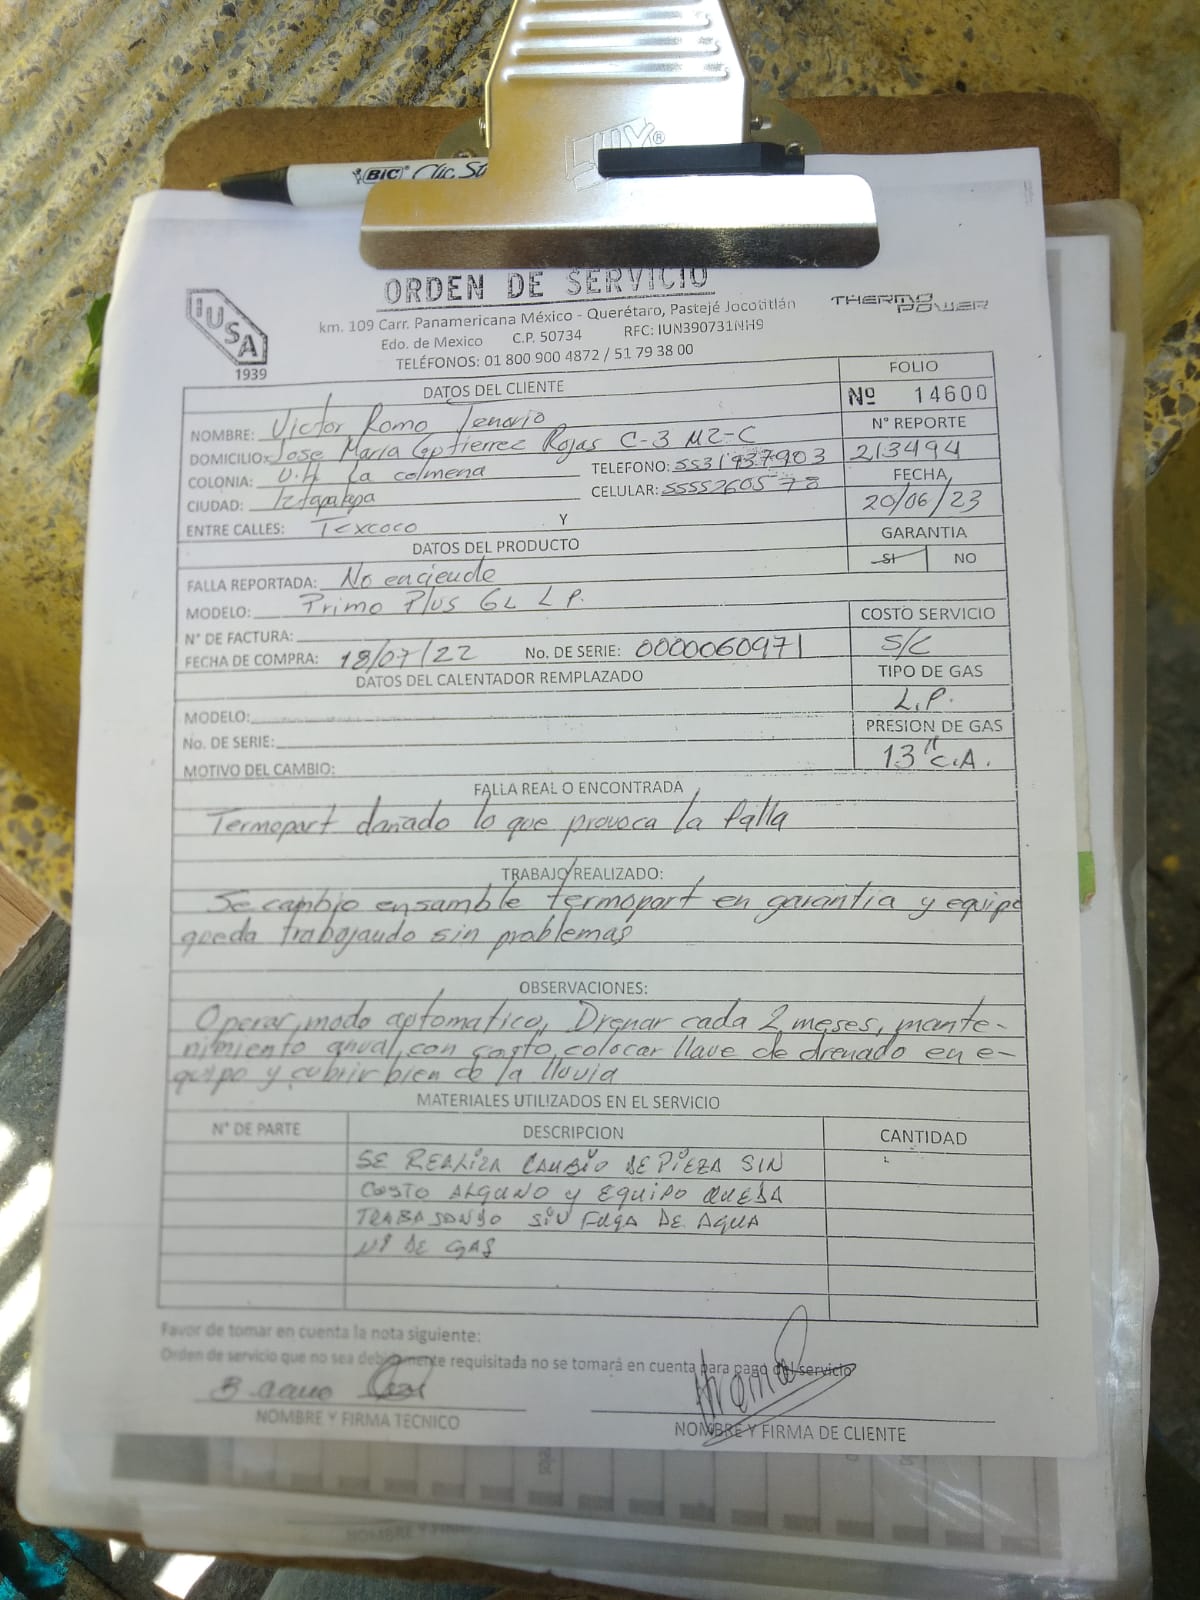 BIC Clic St
ORDEN DE SERVICIO
IUSA
1939
THERMO POWER
km. 109 Carr. Panamericana México - Querétaro, Pastejé Jocotitlán
Edo. de Mexico C.P. 50734 RFC: IUN390731NH9
TELÉFONOS: 01 800 900 4872 / 51 79 38 00
DATOS DEL CLIENTE
FOLIO
Nº 14600
NOMBRE: Victor Romo Tenorio
N° REPORTE
DOMICILIO: Jose María Gutierrez Rojas C-3 MZ-C
213494
COLONIA: U.H. La colmena TELEFONO: 5531937903
FECHA
CIUDAD: Iztapalapa CELULAR: 5555260578
20/06/23
ENTRE CALLES: Texcoco Y
GARANTIA
DATOS DEL PRODUCTO
SI NO
FALLA REPORTADA: No enciende
MODELO: Primo Plus 6L L.P.
COSTO SERVICIO
N° DE FACTURA:
S/C
FECHA DE COMPRA: 18/07/22 No. DE SERIE: 0000060971
TIPO DE GAS
DATOS DEL CALENTADOR REMPLAZADO
L.P.
MODELO:
PRESION DE GAS
No. DE SERIE:
13" C.A.
MOTIVO DEL CAMBIO:
FALLA REAL O ENCONTRADA
Termopart dañado lo que provoca la falla
TRABAJO REALIZADO:
Se cambio ensamble termopart en garantia y equipo
queda trabajando sin problemas
OBSERVACIONES:
Operar modo automatico, Drenar cada 2 meses, mante-
nimiento anual con costo, colocar llave de drenado en e-
quipo y cubrir bien de la lluvia
MATERIALES UTILIZADOS EN EL SERVICIO
N° DE PARTE DESCRIPCION CANTIDAD
SE REALIZA CAMBIO DE PIEZA SIN
COSTO ALGUNO y EQUIPO QUEDA
TRABAJANDO SIN FUGA DE AGUA
NI DE GAS
Favor de tomar en cuenta la nota siguiente:
Orden de servicio que no sea debidamente requisitada no se tomará en cuenta para pago del servicio
NOMBRE Y FIRMA TECNICO
NOMBRE Y FIRMA DE CLIENTE